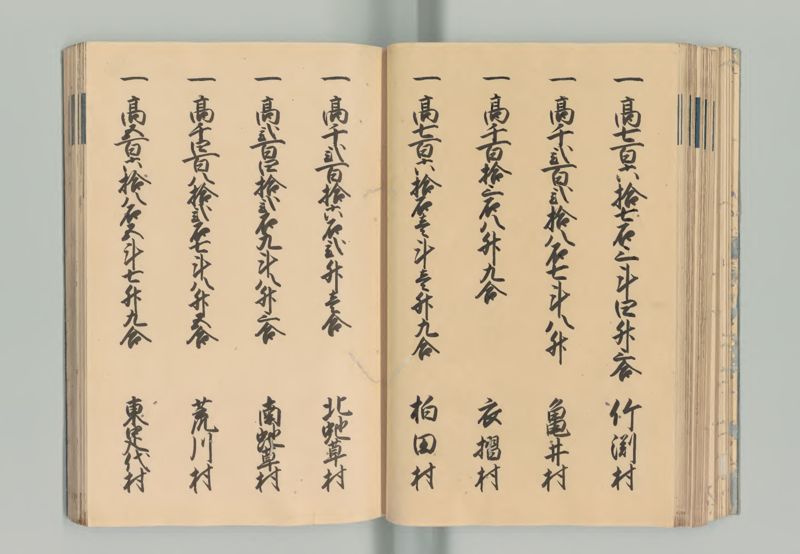 一 高七百六拾七石三斗四升六合 竹渕村
一 高千弐百弐拾八石七斗八升 亀井村
一 高千百拾三石八升九合 衣摺村
一 高七百六拾石壱斗壱升九合 柏田村
一 高千弐百拾六石弐升壱合 北蛇草村
一 高弐百四拾弐石九斗八升三合 南蛇草村
一 高千四百八拾弐石七斗八升五合 荒川村
一 高五百六拾八石五斗七升九合 東足代村